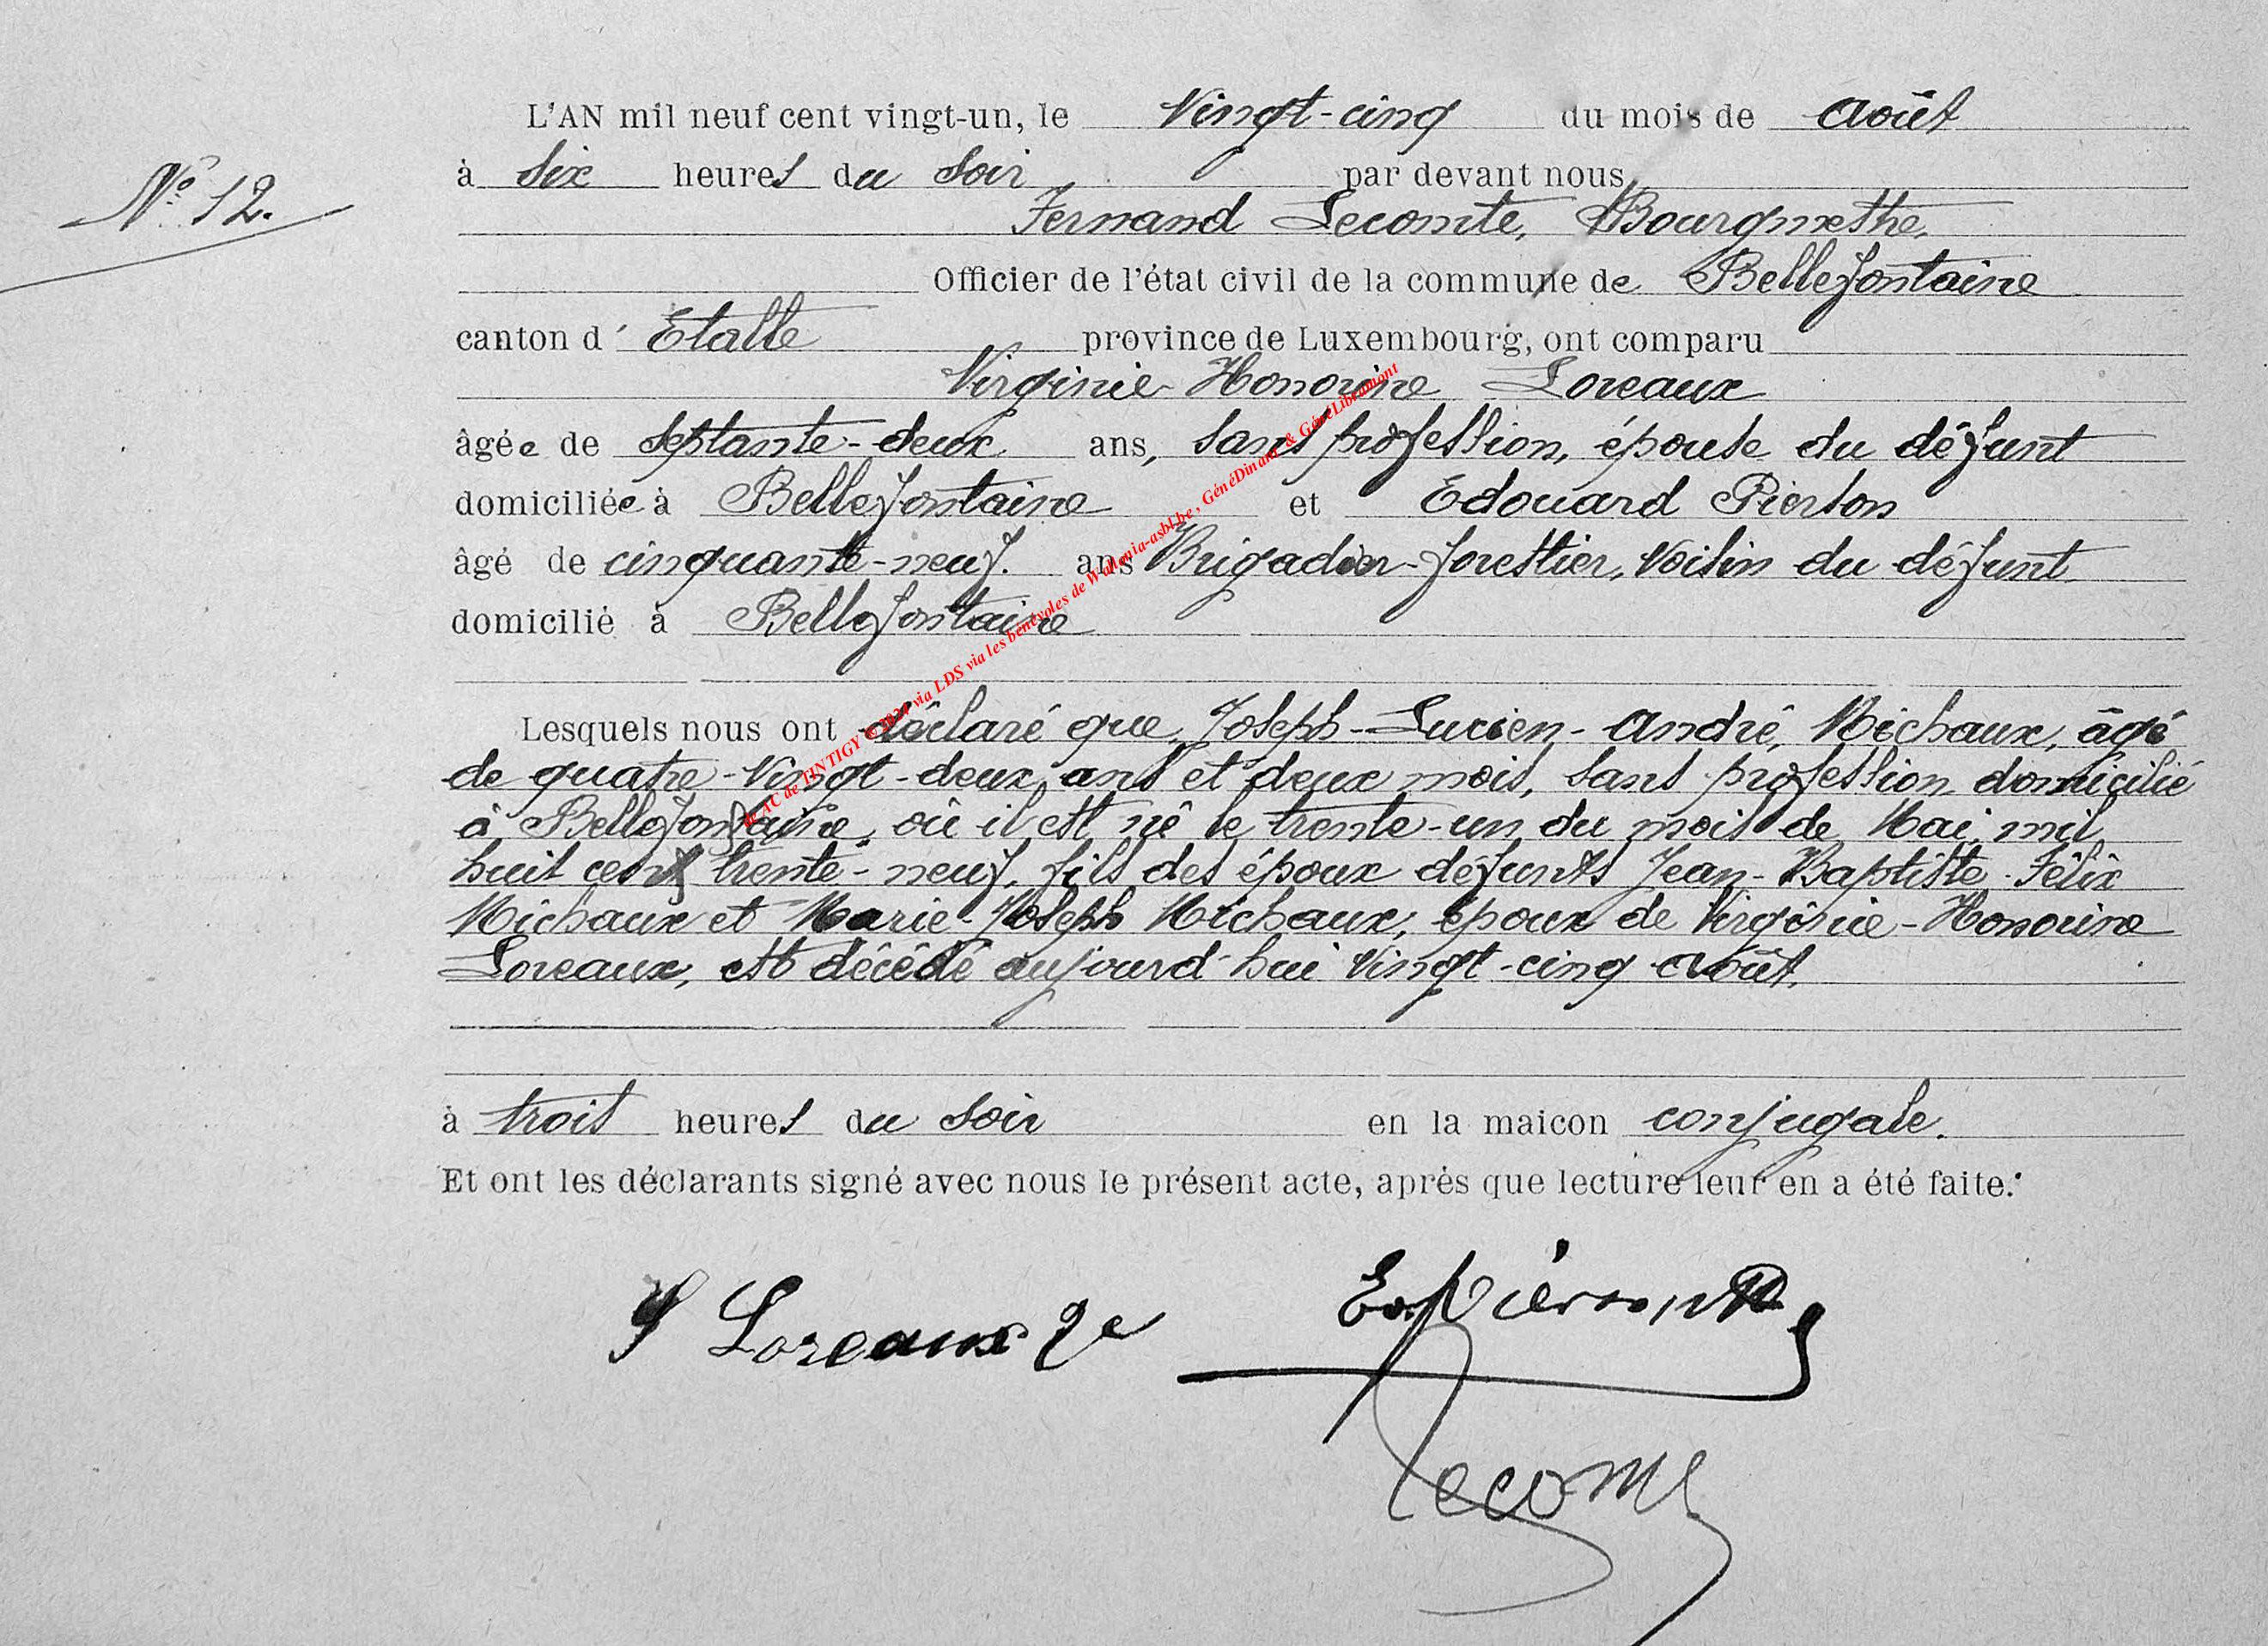 L'AN mil neuf cent vingt-un, le Vingt-cinq du mois de Août
N° 12.
à six heures du soir par devant nous
Fernand Lecomte, Bourgmestre,
Officier de l'état civil de la commune de Bellefontaine
canton d' Etalle province de Luxembourg, ont comparu
Virginie-Honorine Loreaux
âgée de septante-deux ans, sans profession, épouse du défunt
domiciliée à Bellefontaine et Edouard Pierson
âgé de cinquante-neuf. ans Brigadier-forestier, Voisin du défunt
domicilié à Bellefontaine
Lesquels nous ont déclaré que, Joseph-Lucien-André, Michaux, âgé
de quatre-Vingt-deux ans et deux mois, sans profession domicilié
à Bellefontaine, où il est né le trente-un du mois de Mai mil
huit cent trente-neuf, fils des époux défunts Jean-Baptiste-Félix
Michaux et Marie-Joseph Michaux, époux de Virginie-Honorine
Loreaux, est décédé aujourd'hui Vingt-cinq août.
à trois heures du soir en la maicon conjugale.
Et ont les déclarants signé avec nous le présent acte, après que lecture leur en a été faite.
Loreaux
Ed. Pierson
Lecomte
AC de TINTIGY © 2024 via LDS via les bénévoles de Wallonia-asbl.be, GénéDinant & GénéLibramont